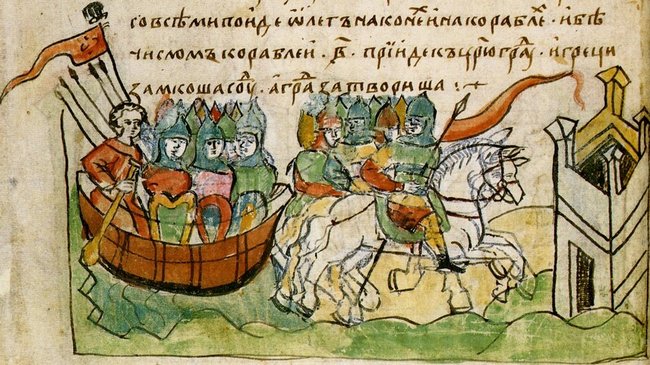 со всѣми поиде ѡлегъ на конеи и на корабле · и бѣ
числомъ кораблеи · в҃ · прїиде къ цр҃ю граⷣ · и греци
замкоша соуⷣ · а граⷣ затвориша :·